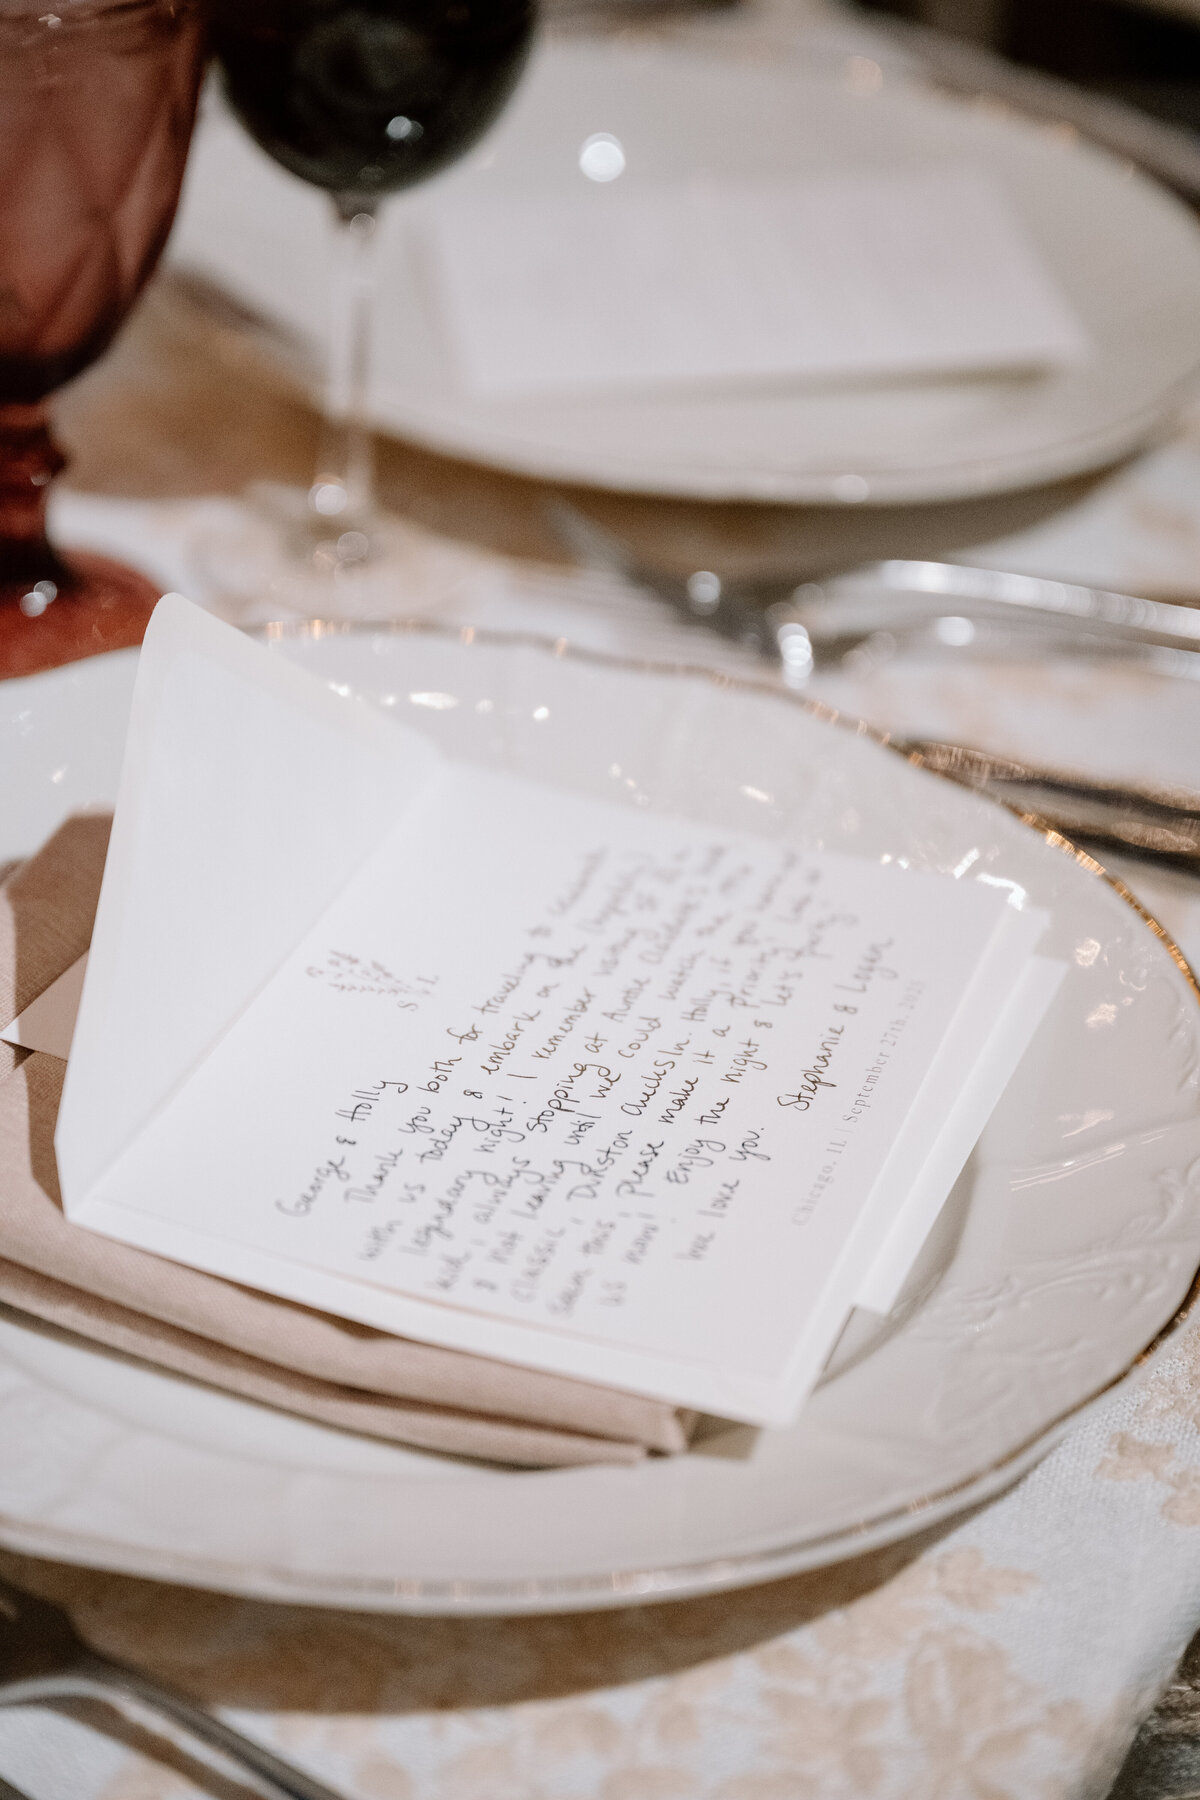 S L
George & Holly
Thank you both for traveling to celebrate
with us today & embark on the (hopefully)
legendary night! I remember visiting st
kid, always stopping at Auntie
& not leaving until we could watch the
classic, Dunston Checks In. Holly, if you
seen this, please make it a priority!
us mom! Enjoy the night & let's party!
We love you. Stephanie & Logan
Chicago, IL | September 27th, 2025